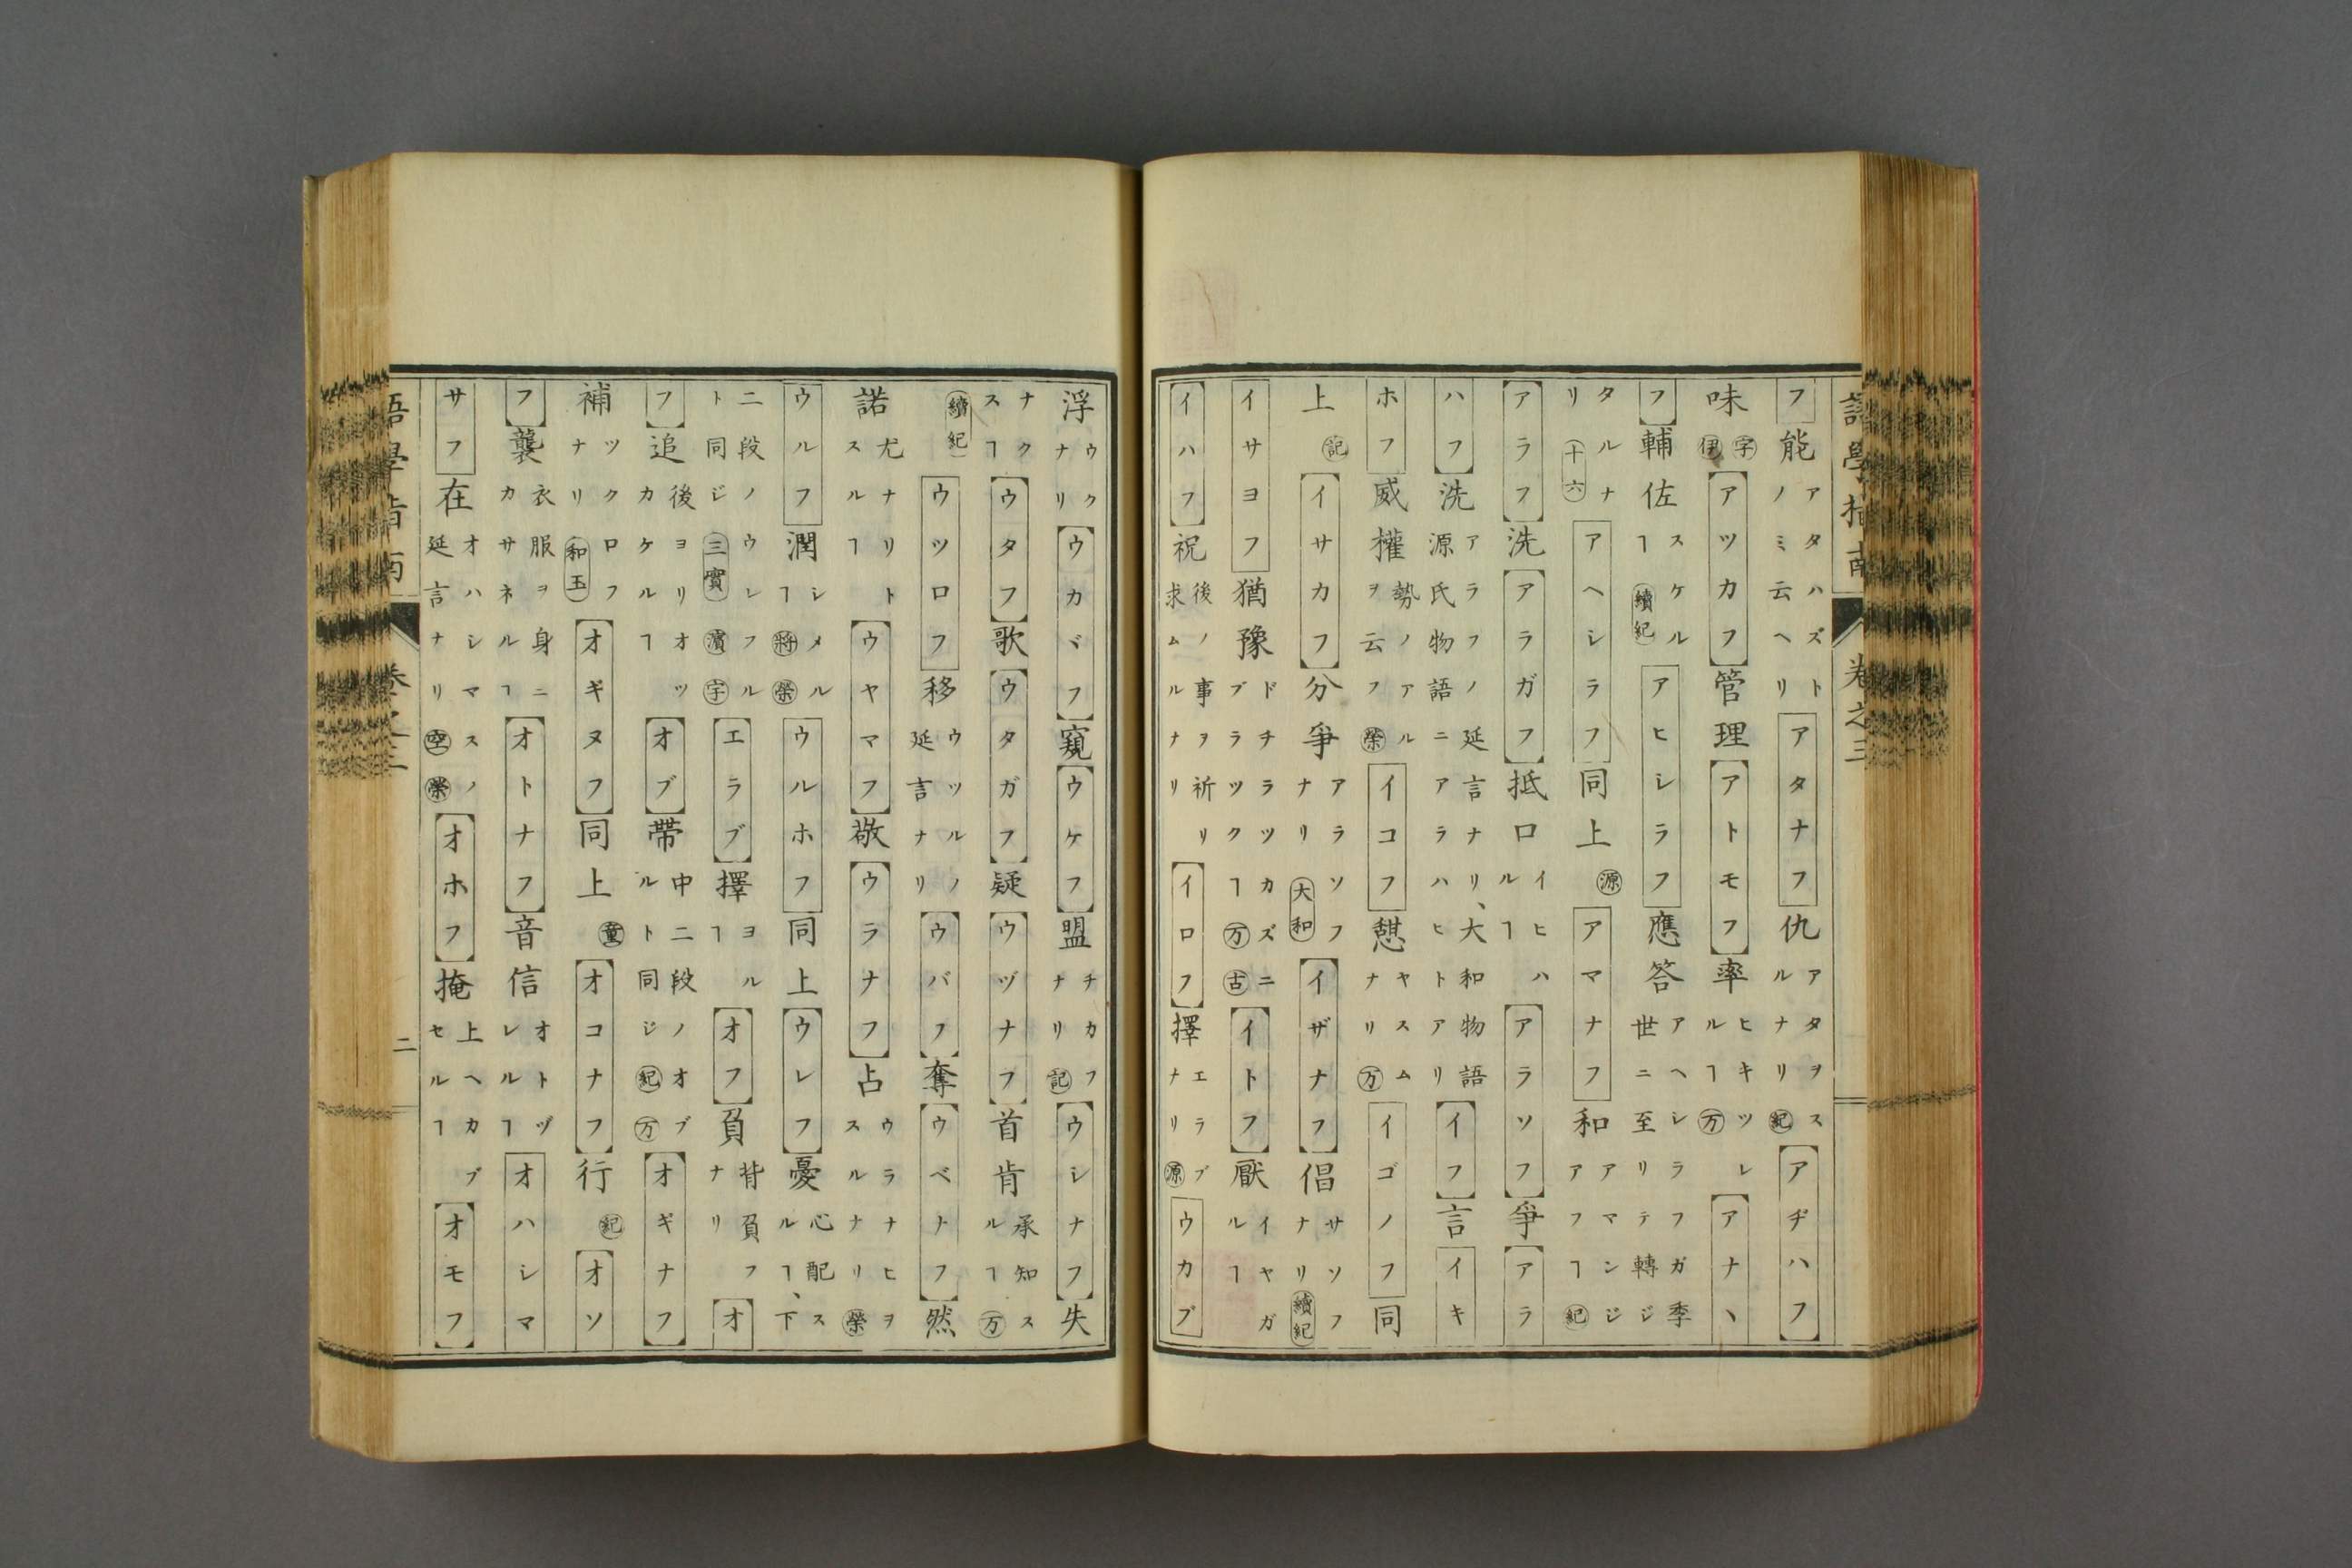 語學指南 卷之三
フ能アタハズトノミ云ヘリアタナフ仇アタヲスルナリ紀アヂハフ
味宇伊アツカフ管理アトモフ率ヒキツレルヿ万アナヽ
フ輔佐スケルヿ續紀アヒシラフ應答アヘシラフガ季世ニ至リテ轉ジ
タルナリ十六アヘシラフ同上源アマナフ和アマンジアフヿ紀
アラフ洗アラガフ抵口イヒハルヿアラソフ爭アラ
ハフ洗アラフノ延言ナリ、大和物語源氏物語ニアラハヒトアリイフ言イキ
ホフ威權勢ノアルヲ云フ榮イコフ憇ヤスムナリ万イゴノフ同
上記イサカフ分爭アラソフナリ大和イザナフ倡サソフナリ續紀
イサヨフ猶豫ドチラツカズニブラツクヿ万古イトフ厭イヤガルヿ
イハフ祝後ノ事ヲ祈リ求ムルナリイロフ擇エラブナリ源ウカブ
浮ウクナリウカヾフ窺ウケフ盟チカフナリ記ウシナフ失
ナクスヿウタフ歌ウタガフ疑ウヅナフ首肯承知スルヿ万
續紀ウツロフ移ウツルノ延言ナリウバフ奪ウベナフ然
諾尤ナリトスルヿウヤマフ敬ウラナフ占ウラナヒヲスルナリ榮
ウルフ潤シメルヿ將榮ウルホフ同上ウレフ憂心配スルヿ、下
二段ノウレフルト同ジ三實濱字エラブ擇ヨルヿオフ負背負フナリオ
フ追後ヨリオッカケルヿオブ帶中二段ノオブルト同ジ紀万オギナフ
補ツクロフナリ和玉オギヌフ同上童オコナフ行紀オソ
フ襲衣服ヲ身ニカサネルヿオトナフ音信オトヅレルヿオハシマ
サフ在オハシマスノ延言ナリ空榮オホフ掩上ヘカブセルヿオモフ
語學指南 卷之三 二